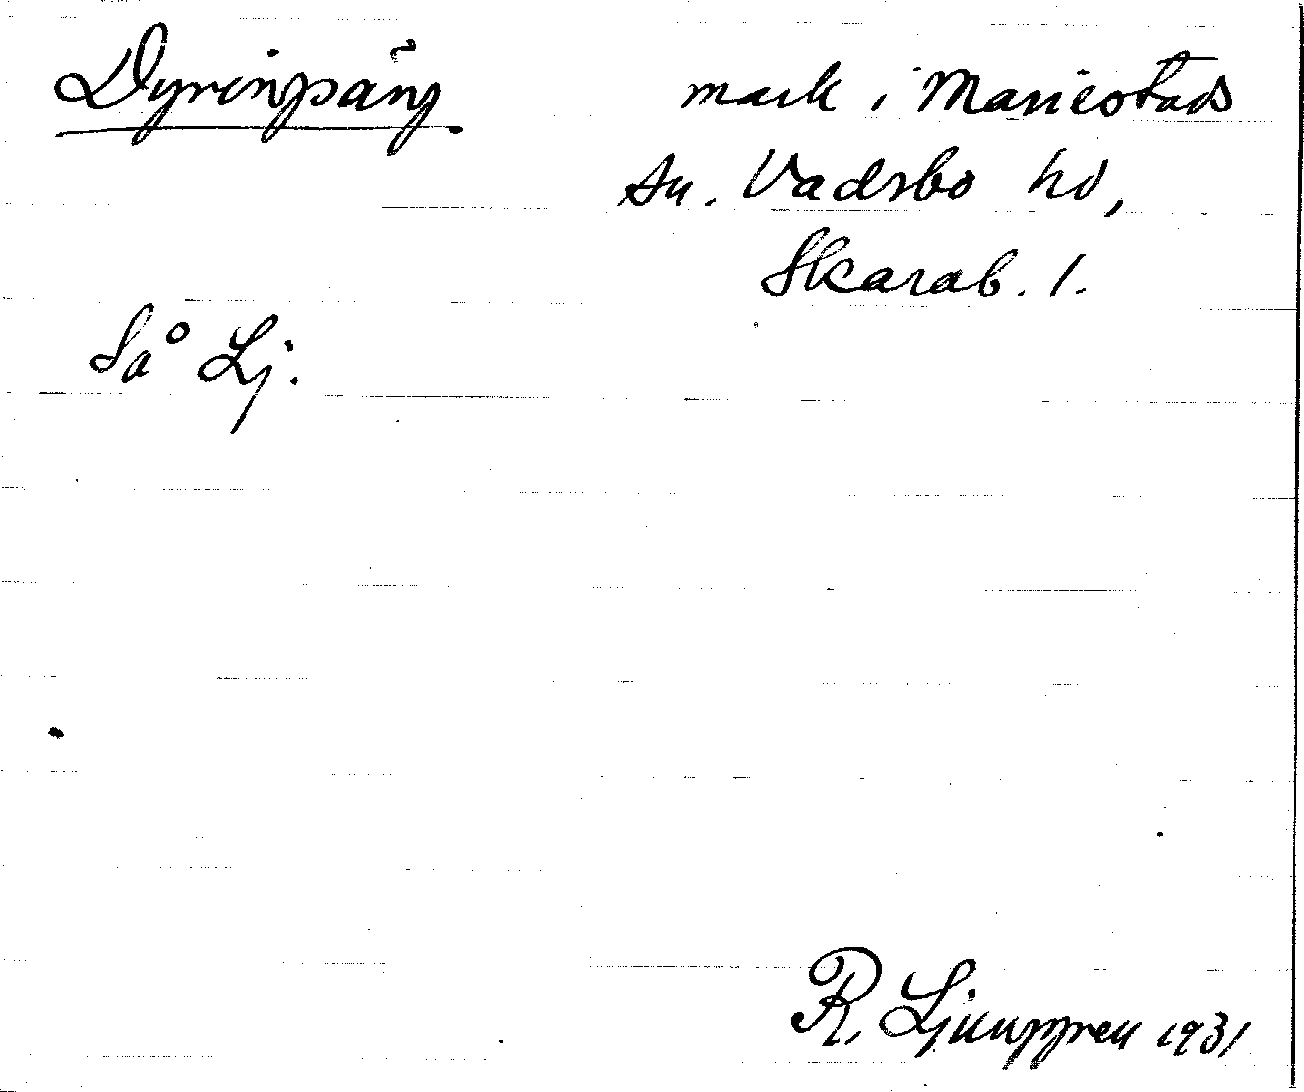 Dyringsäng mark i Mariestads
sn. Vadsbo hd,
Skarab. l.
Så Lj.
R. Ljunggren 1931